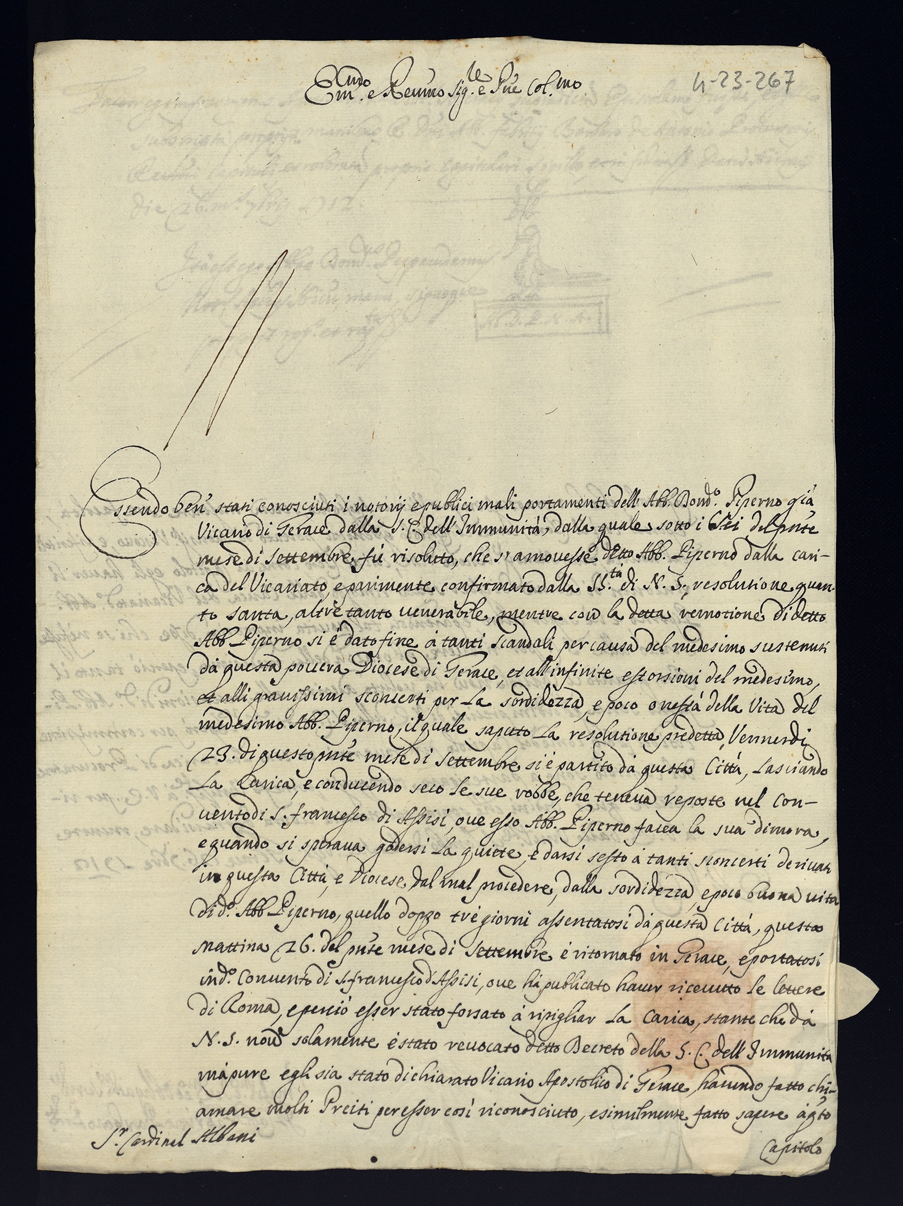 4-23-267
Em.mo e Reumo Sig.re e Pne Col.mo
Essendo ben stati conosciuti i notorij e publici mali portamenti dell'Abb. Bond.o Piperno già
Vicario di Gerace dalla S. C. dell'Immunità, dalla quale sotto i sei del pnte
mese di settembre fù risoluto, che si amouesse detto Abb. Piperno dalla cari-
ca del Vicariato, e parimente confirmato dalla SS.tà di N. S., resolutione quan-
to santa, altre tanto venerabile, mentre con la detta remotione di detto
Abb. Piperno si è dato fine à tanti scandali per causa del medesimo sustenuti
dà questa pouera Diocese di Gerace, et all'infinite estorsioni del medesimo,
et alli grauissimi sconcerti per la sordidezza, e poco onestà della Vita del
medesimo Abb. Piperno, il quale saputo la resolutione predetta, Vennerdì
23. di questo pnte mese di settembre si è partito dà questa Città, lasciando
la Carica, e conducendo seco le sue robbe, che teneua reposte nel Con-
uento di S. francesco di Assisi, oue esso Abb. Piperno facea la sua dimora,
e quando si speraua godersi la quiete, e darsi sesto à tanti sconcerti deriuati
in questa Città, e Diocese dal mal procedere, dalla sordidezza, e poco buona uita
di d.o Abb. Piperno, quello doppo tre giorni assentatosi dà questa Città, questa
mattina 26. del pnte mese di settembre è ritornato in Gerace, e portatosi
in d.o Conuento di S. francesco d'Assisi, oue hà publicato hauer riceuuto le lettere
di Roma, e perciò esser stato forsato à ripigliar la Carica, stante che dà
N. S. non solamente è stato reuocato detto Decreto della S. C. dell'Immunità
mà pure egli sia stato dichiarato Vicario Apostolico di Gerace, hauendo fatto chi-
amare molti Preiti per esser così riconosciuto, e similmente fatto sapere à q.to
S.r Cardinal Albani
Capitolo